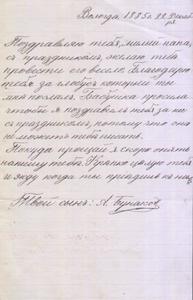 Вологда, 1885 г. 22 Декаб
ря.
Поздравляю тебя, милый папа,
съ праздникомъ, желаю тебѣ
провести его весело. Благодарю
тебя за которыя ты
мнѣ послалъ. Бабушка просила
чтобъ я поздравилъ тебя за нее
съ праздникомъ, потому что она
не можетъ тебѣ писать.
Покуда прощай я скоро опять
напишу тебѣ. Крѣпко цалую тебя
и жду когда ты пріѣдешь къ намъ
Твой сынъ: А. Бунаковъ